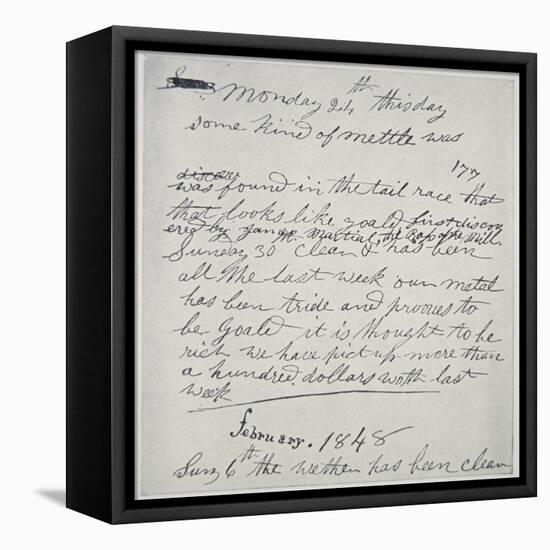 Monday 24th this day
some kind of mettle was
177
was found in the tail race that
that looks like goald first discov
ered by James Martial, the Boss of the Mill
Sunday 30th clean & has been
all the last week our metal
has been tride and prooves to
be goald it is thought to be
rich we have pict up more than
a hundred dollars woth last
week
February. 1848
Sun 6th the wether has been clear